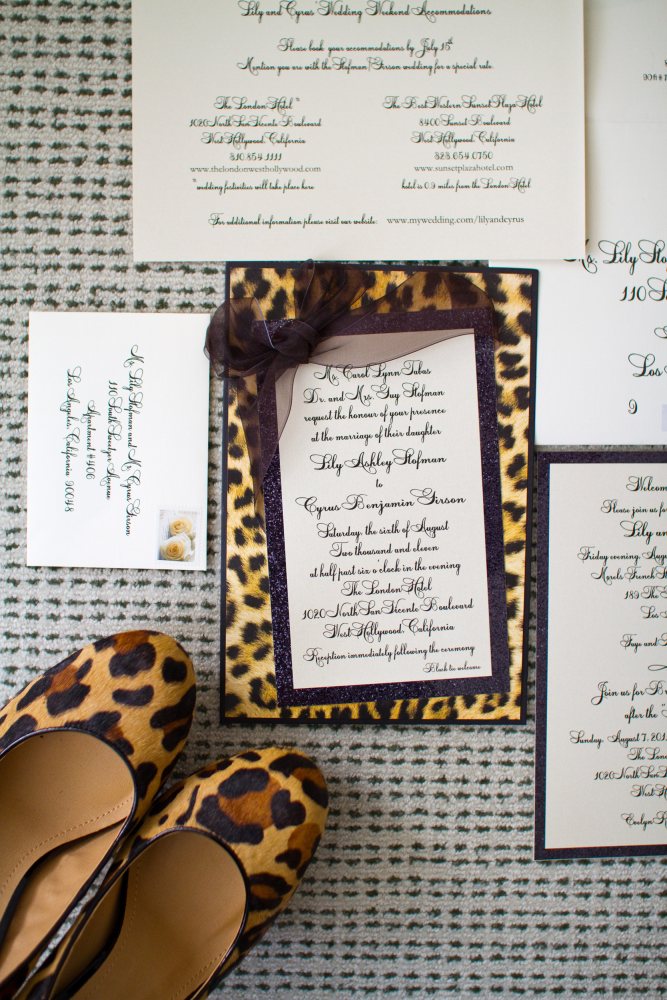 Lily and Cyrus' Wedding Weekend Accommodations
Please book your accommodations by July 15th
Mention you are with the Hofman/Gerson wedding for a special rate.
The London Hotel **
1020 North San Vicente Boulevard
West Hollywood, California
310.854.1111
www.thelondonwesthollywood.com
**wedding festivities will take place here
The Best Western Sunset Plaza Hotel
8400 Sunset Boulevard
West Hollywood, California
323.654.0750
www.sunsetplazahotel.com
hotel is 0.9 miles from the London Hotel
For additional information please visit our website: www.mywedding.com/lilyandcyrus
Ms. Carol Lynn Tabas
Dr. and Mrs. Guy Hofman
request the honour of your presence
at the marriage of their daughter
Lily Ashley Hofman
to
Cyrus Benjamin Gerson
Saturday, the sixth of August
Two thousand and eleven
at half past six o'clock in the evening
The London Hotel
1020 North San Vicente Boulevard
West Hollywood, California
Reception immediately following the ceremony
Black tie welcome
Ms. Lily Hofman and Mr. Cyrus Gerson
110 South Sweetzer Avenue
Apartment #406
Los Angeles, California 90048
Ms. Lily
110
Los
9
Welcom
Please join us f
Lily an
Friday evening, Aug
Morels French
189 The
Los
Faye and
Join us for B
after the
Sunday, August 7, 201
The Lond
1020 North San
West Ho
Evelyn R